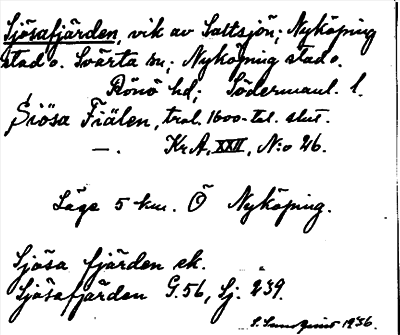 Sjösafjärden, vik av Saltsjön; Nyköping
stad o. Svärta sn; Nyköping stad o.
Rönö hd; Södermanl. l.
Siösa Fiälen, trol. 1600-tal. slut.
—. KrA, XXII, N:o 26.
Läge 5 km. Ö Nyköping.
Sjösa fjärden ek.
Sjösafjärden G.56, Sj. 239.
1936.